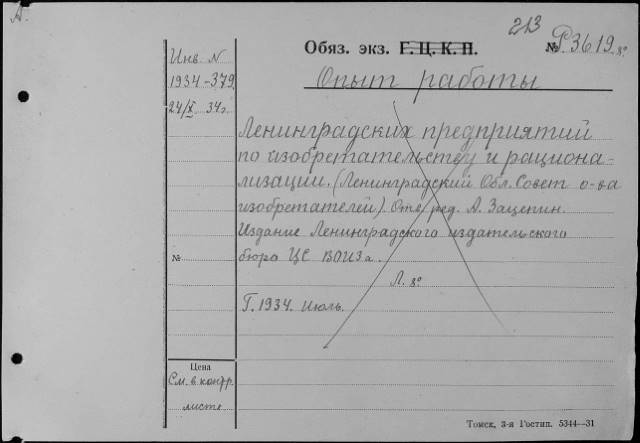 А.
213
Обяз. экз. Г.Ц.К.П.
№ Р3619.8°
Инв. N
1934-379
24/X 34г.
Опыт работы
Ленинградских предприятий
по изобретательству и рациона-
лизации. (Ленинградский Обл. Совет о-ва
изобретателей). Отв. ред. А. Зацепин.
Издание Ленинградского издательского
бюро ЦС ВОИЗа.
№
Л. 8°
Г. 1934. Июль.
Цена
См. в. контр.
листе
Томск, 3-я Гостип. 5344—31